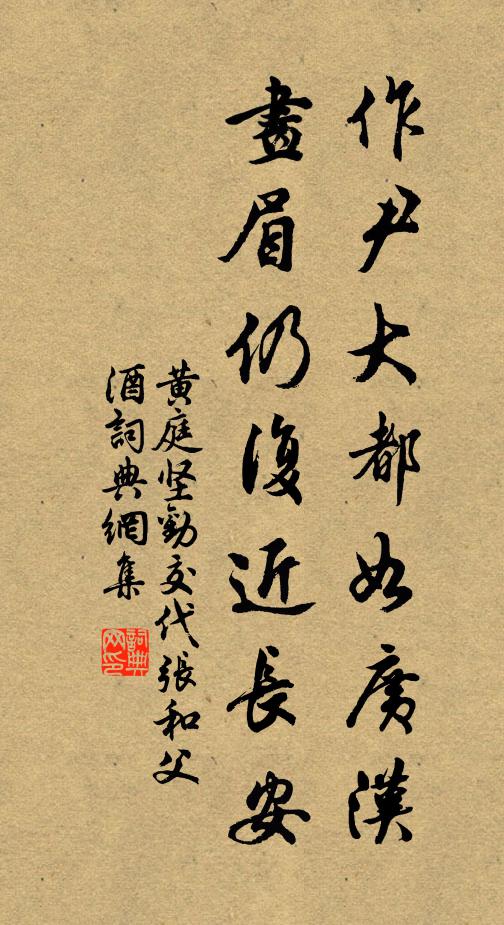 作尹大都如廣漢
畫眉仍復近長安
黄庭坚勸交代張和父
酒詞典網集
詞典网印